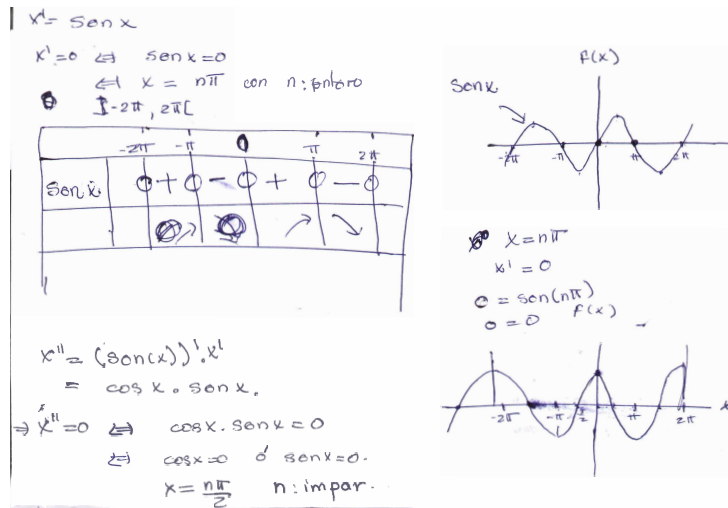 x' = sen x
x' = 0 ⇔ sen x = 0
⇔ x = nπ con n: entero
]-2π, 2π[
-2π -π 0 π 2π
sen x 0 + 0 - 0 + 0 - 0
x'' = (sen(x))'. x'
= cos x . sen x.
⇒ x'' = 0 ⇔ cos x . sen x = 0
⇔ cos x = 0 ó sen x = 0.
x = nπ/2 n: impar.
f(x)
sen x
-2π -π π 2π
x = nπ
x' = 0
0 = sen(nπ)
0 = 0
f(x)
-2π -π -π/2 π 2π x